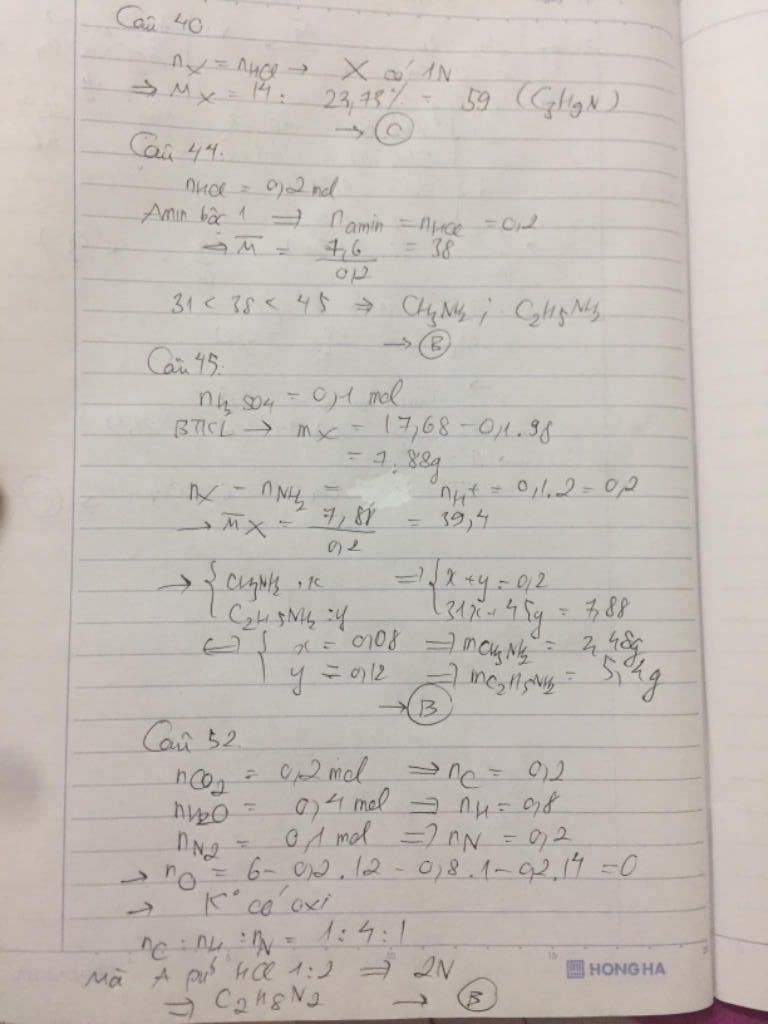 Câu 40.
nX = nHCl → X có 1N
⇒ MX = 14 : 23,73% = 59 (C3H9N)
→ C
Câu 44.
nHCl = 0,2 mol
Amin bậc 1 ⇒ namin = nHCl = 0,2
→ M̅ = 7,6/0,2 = 38
31 < 38 < 45 ⇒ CH3NH2 ; C2H5NH2
→ B
Câu 45.
nH2SO4 = 0,1 mol
BTKL → mX = 17,68 - 0,1.98
= 7,88g
nX = nNH2 = nH+ = 0,1.2 = 0,2
→ M̅X = 7,88/0,2 = 39,4
→ { CH3NH2 : x ⇒ { x + y = 0,2
C2H5NH2 : y 31x + 45y = 7,88
⇔ { x = 0,08 ⇒ mCH3NH2 = 2,48g
y = 0,12 ⇒ mC2H5NH2 = 5,4g
→ B
Câu 52.
nCO2 = 0,2 mol ⇒ nC = 0,2
nH2O = 0,4 mol ⇒ nH = 0,8
nN2 = 0,1 mol ⇒ nN = 0,2
→ nO = 6 - 0,2.12 - 0,8.1 - 0,2.14 = 0
→ K° có oxi
nC : nH : nN = 1 : 4 : 1
Mà A pứ HCl 1:2 ⇒ 2N
HONG HA
⇒ C2H8N2 → B